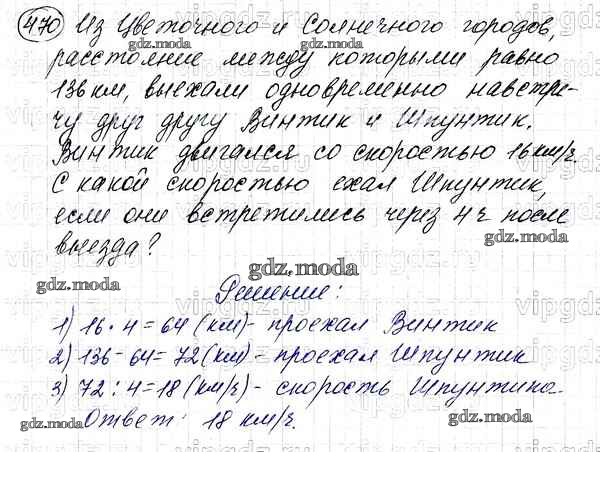 470 Из Цветочного и Солнечного городов,
расстояние между которыми равно
136 км, выехали одновременно навстре-
чу друг другу Винтик и Шпунтик.
Винтик двигался со скоростью 16 км/ч.
С какой скоростью ехал Шпунтик,
если они встретились через 4 ч после
выезда?
gdz.moda
Решение:
1) 16 · 4 = 64 (км) - проехал Винтик
2) 136 - 64 = 72 (км) - проехал Шпунтик
3) 72 : 4 = 18 (км/ч) - скорость Шпунтика.
Ответ: 18 км/ч.
gdz.moda